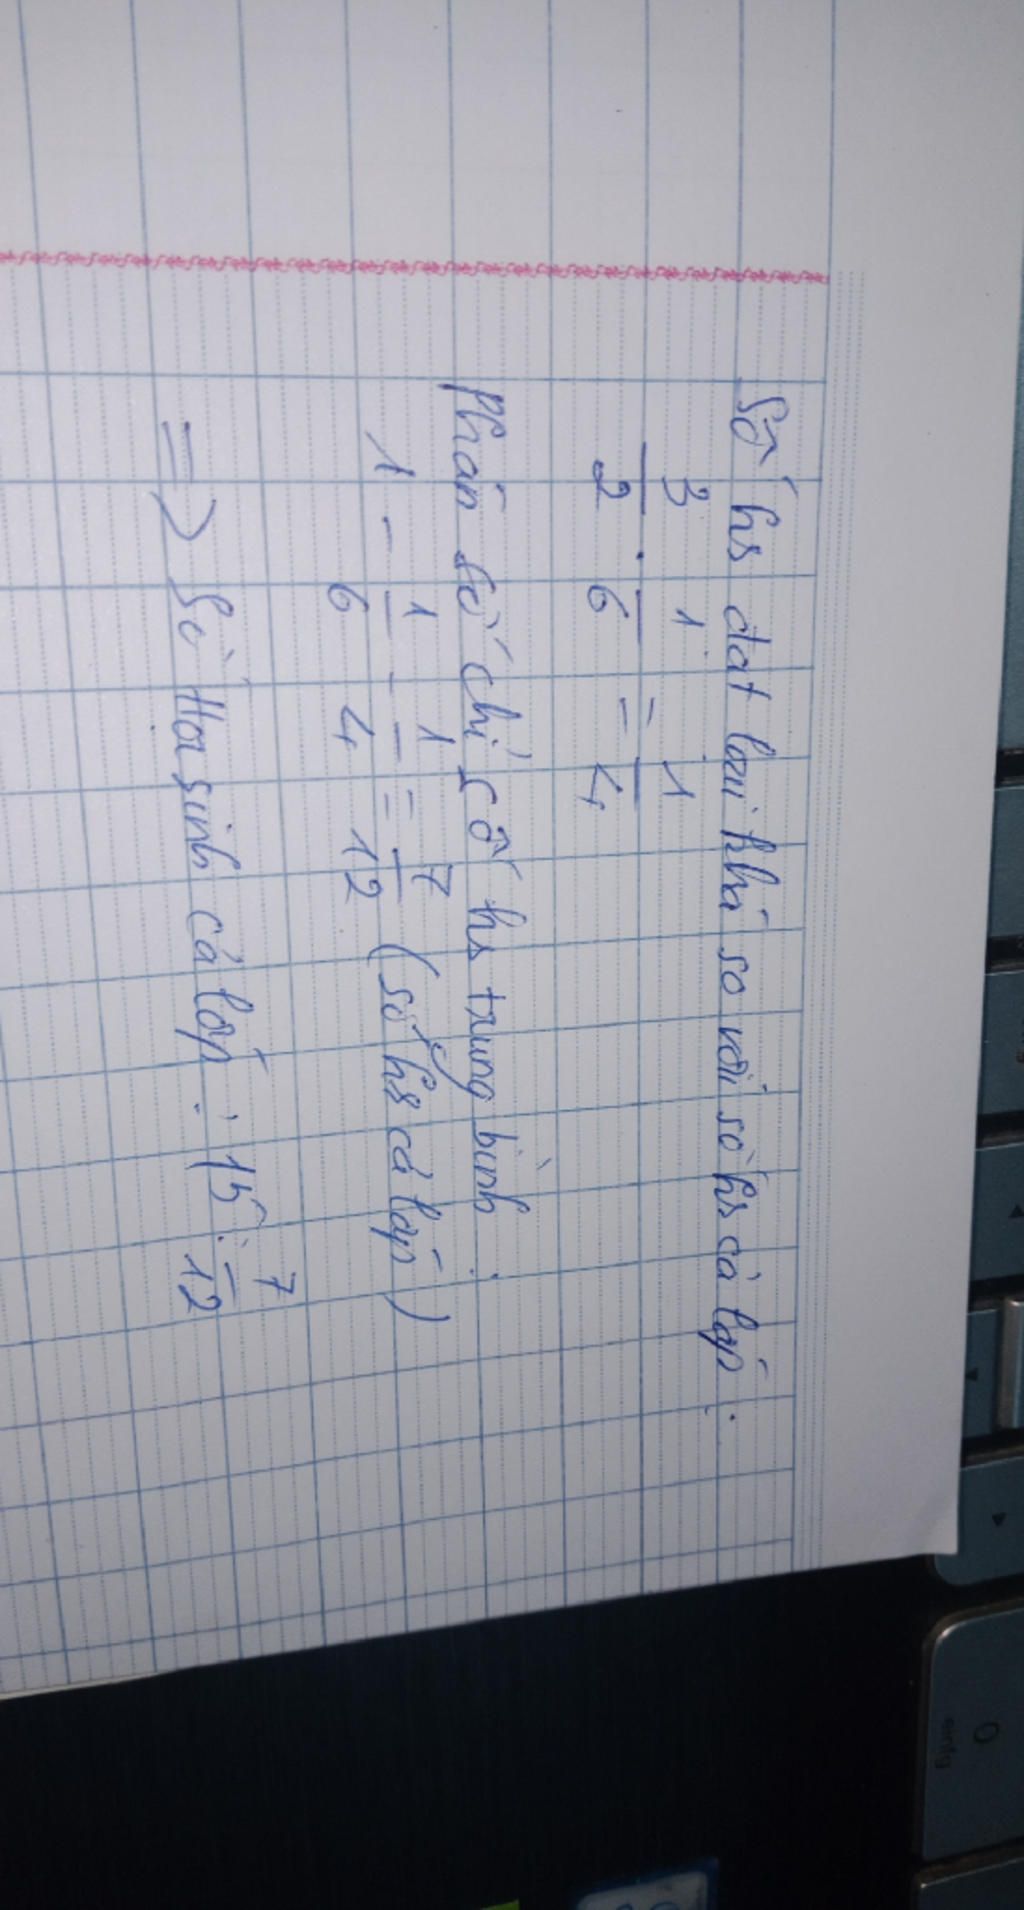 Số hs đạt loại khá so với số hs cả lớp :
3/2 . 1/6 = 1/4
Phân số chỉ số hs trung bình :
1 - 1/6 - 1/4 = 7/12 (số hs cả lớp)
=> Số Họ sinh cả lớp : 15 : 7/12
0
einfg